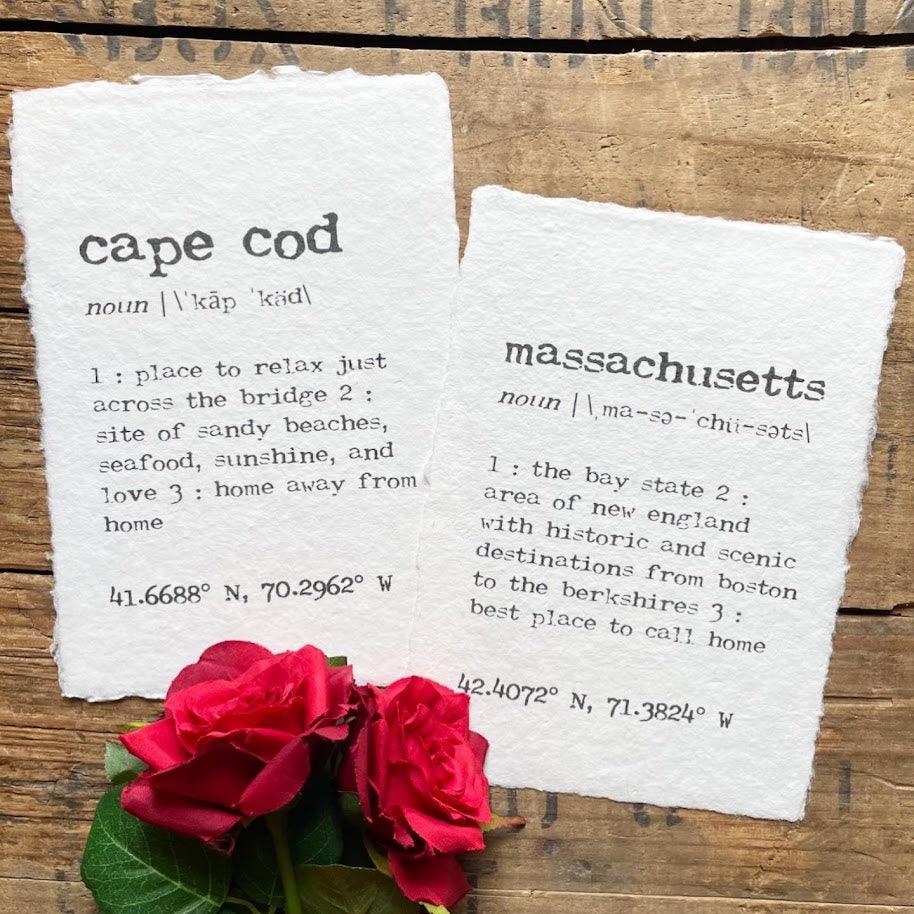 cape cod
noun | \ˈkāp ˈkäd\
1 : place to relax just
across the bridge 2 :
site of sandy beaches,
seafood, sunshine, and
love 3 : home away from
home
41.6688° N, 70.2962° W
massachusetts
noun | \ˌma-sə-ˈchü-səts\
1 : the bay state 2 :
area of new england
with historic and scenic
destinations from boston
to the berkshires 3 :
best place to call home
42.4072° N, 71.3824° W